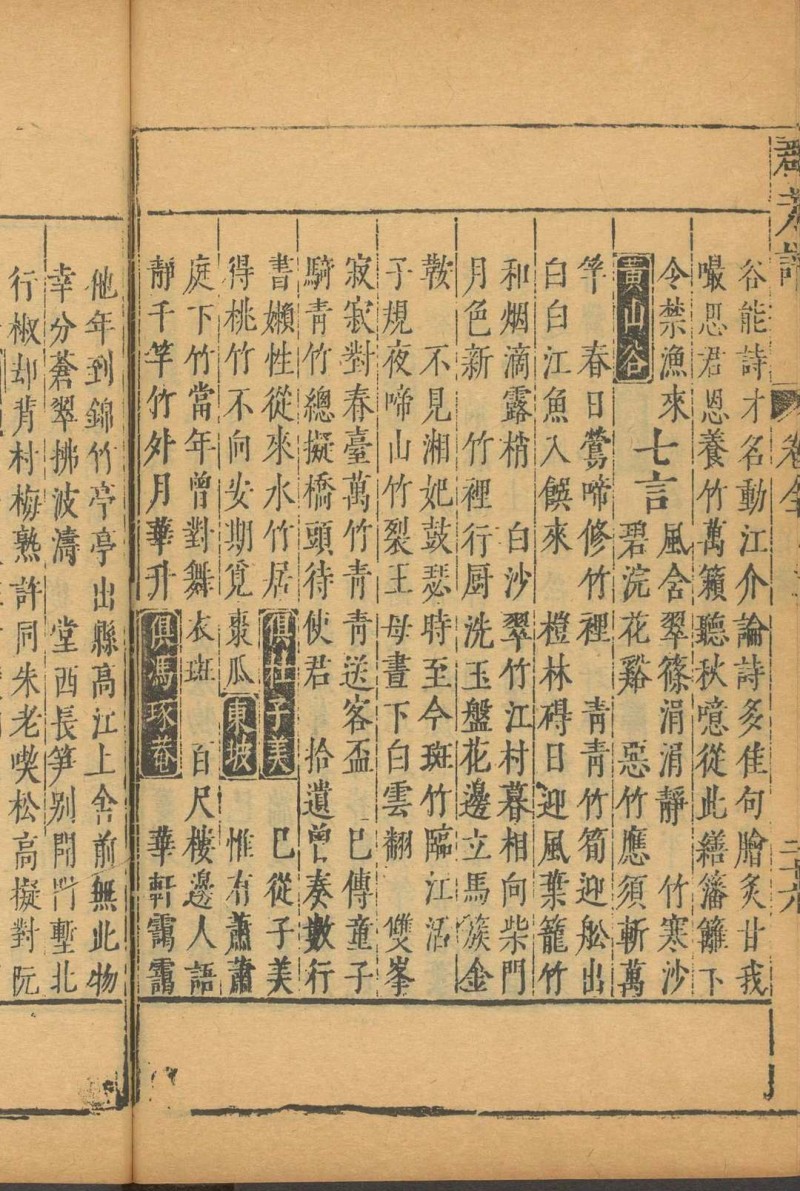 羣芳譜
卷全
二十六
谷能詩才名動江介論詩多佳句膾炙甘我
嘬思君恩養竹萬籟聽秋噫從此繕藩籬下
令禁漁來 七言 風含翠篠涓涓靜 竹寒沙
黃山谷 碧浣花谿 惡竹應須斬萬
竿 春日鶯啼修竹裡 青青竹筍迎船出
白白江魚入饌來 榿林碍日迎風葉籠竹
和烟滴露梢 白沙翠竹江村暮相向柴門
月色新 竹裡行厨洗玉盤花邊立馬簇金
鞍 不見湘妃鼓瑟時至今斑竹臨江活
子規夜啼山竹裂王母晝下白雲翻 雙峯
寂寂對春臺萬竹青青送客盃 巳傳童子
騎青竹總擬橋頭待使君 拾遺曾奏數行
書嬾性從來水竹居 俱杜子美 巳從子美
得桃竹不向安期覓棗瓜 東坡 惟有蕭蕭
庭下竹當年曾對舞衣斑 百尺樓邊人語
靜千竿竹外月華升 俱馮琢菴 華軒靄靄
他年到錦竹亭亭出縣高江上舍前無此物
幸分蒼翠拂波濤 堂西長笋別開門塹北
行椒却背村梅熟許同朱老喫松高擬對阮